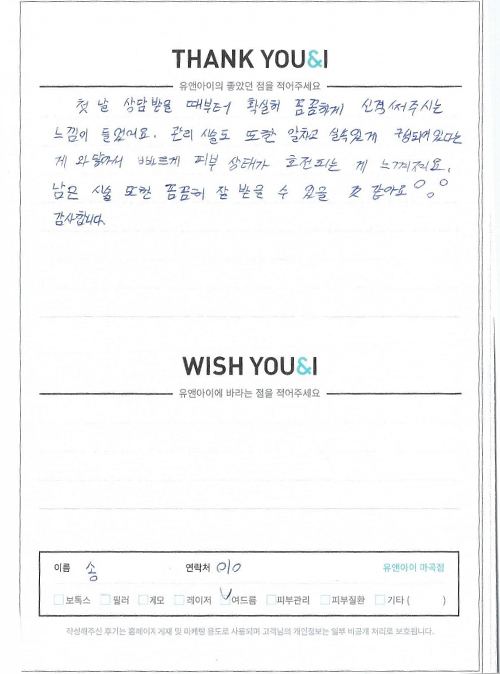 THANK YOU&I
유앤아이의 좋았던 점을 적어주세요
첫 날 상담 받을 때부터 확실히 꼼꼼하게 신경써주시는
느낌이 들었어요. 관리 시술도 또한 알차고 실속있게 구성되어있다는
게 와닿아서 빠르게 피부 상태가 호전되는 게 느껴져요.
남은 시술 또한 꼼꼼히 잘 받을 수 있을 것 같아요
감사합니다.
WISH YOU&I
유앤아이에 바라는 점을 적어주세요
이름 송 연락처 010 유앤아이 마곡점
보톡스 필러 제모 레이저 여드름 피부관리 피부질환 기타 ( )
작성해주신 후기는 홈페이지 게재 및 마케팅 용도로 사용되며 고객님의 개인정보는 일부 비공개 처리로 보호됩니다.